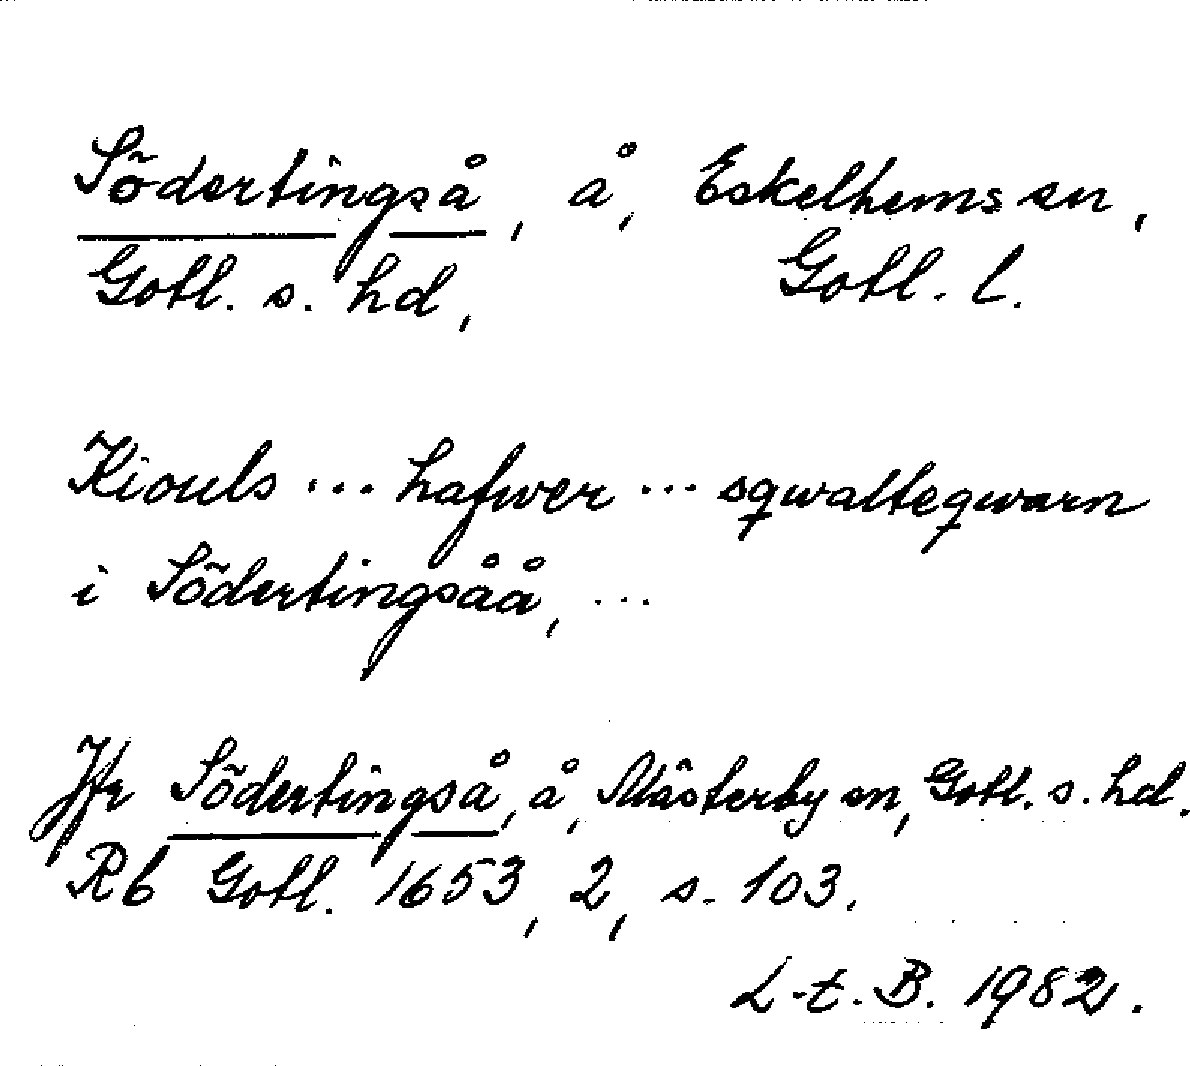 Södertingså, å, Eskelhems sn,
Gotl. s. hd, Gotl. l.
Kiouls ... hafwer ... sqwalteqwarn
i Södertingsåå, ...
Jfr Södertingså, å, Mästerby sn, Gotl. s. hd.
Rb Gotl. 1653, 2, s. 103.
L-t. B. 1982.